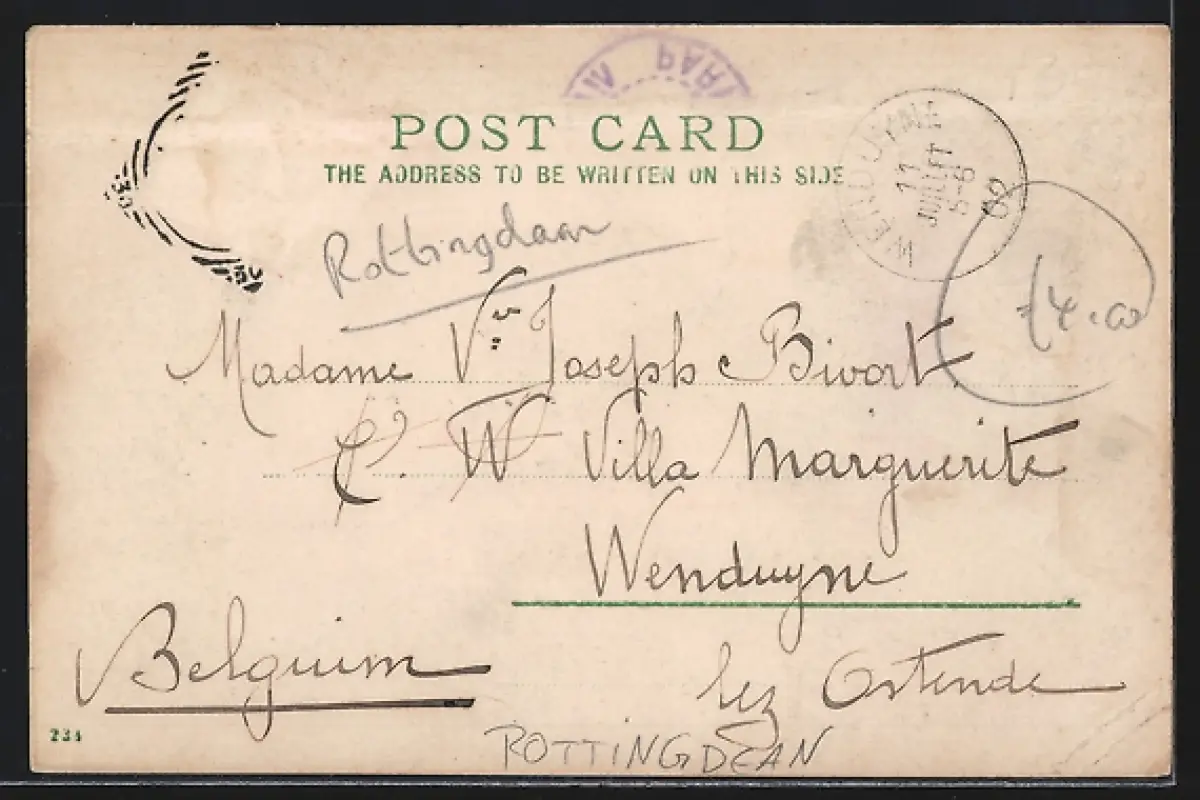 PARI
POST CARD
THE ADDRESS TO BE WRITTEN ON THIS SIDE
WENDUYNE
11
JUILLET
5-6
02
Rottingdean
£4.00
Madame Vve Joseph Bivort
Villa Marguerite
Wenduyne
Belgium
lez Ostende
234
ROTTINGDEAN